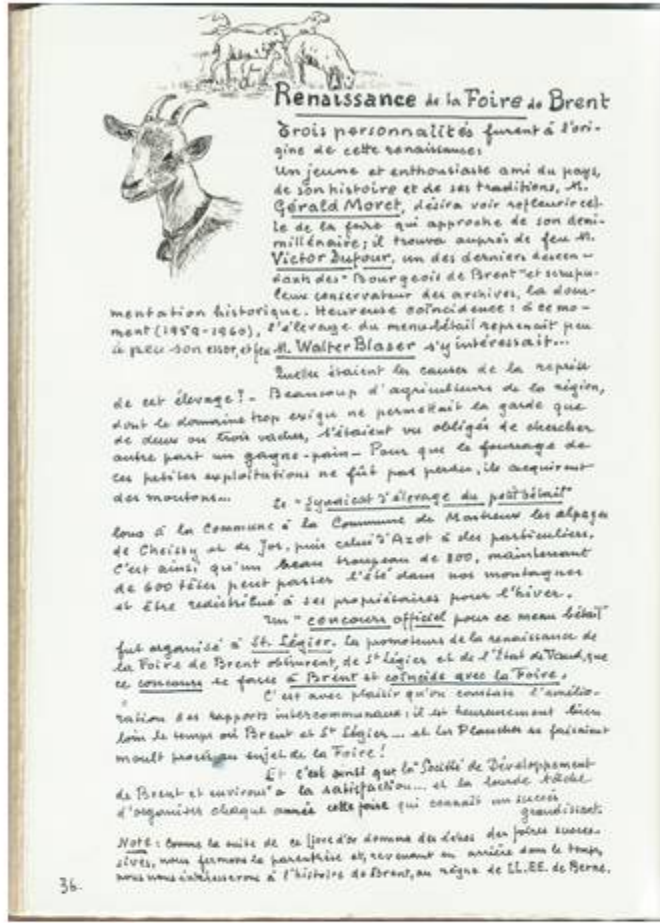 Renaissance de la Foire de Brent
Trois personnalités furent à l'ori-
gine de cette renaissance:
Un jeune et enthousiaste ami du pays,
de son histoire et de ses traditions, M.
Gérald Moret, désira voir refleurir cel-
le de la foire qui approche de son demi-
millénaire; il trouva auprès de feu M.
Victor Dufour, un des derniers descen-
dants des "Bourgeois de Brent" et scrupu-
leux conservateur des archives, la docu-
mentation historique. Heureuse coïncidence: à ce mo-
ment (1959-1960), l'élevage du menu bétail reprenait peu
à peu son essor, et feu M. Walter Blaser s'y intéressait...
Quelles étaient les causes de la reprise
de cet élevage? - Beaucoup d'agriculteurs de la région,
dont le domaine trop exigu ne permettait la garde que
de deux ou trois vaches, s'étaient vu obligés de chercher
autre part un gagne-pain - Pour que le fourrage de
ces petites exploitations ne fût pas perdu, ils acquirent
des moutons...
Le "Syndicat d'élevage du petit bétail"
loua à la Commune à la Commune de Montreux les alpages
de Cheissy et de Jor, puis celui d'Azot à des particuliers.
C'est ainsi qu'un beau troupeau de 800, maintenant
de 600 têtes peut passer l'été dans nos montagnes
et être redistribué à ses propriétaires pour l'hiver.
Un "concours officiel pour ce menu bétail"
fut organisé à St. Légier. Les promoteurs de la renaissance de
la Foire de Brent obtinrent, de St Légier et de l'État de Vaud, que
ce concours se fasse à Brent et coïncide avec la Foire.
C'est avec plaisir qu'on constate l'amélio-
ration des rapports intercommunaux; il est heureusement bien
loin le temps où Brent et St Légier... et les Planches se faisaient
moult procès au sujet de la Foire!
Et c'est ainsi que la "Société de Développement
de Brent et environs" a la satisfaction... et la lourde tâche
d'organiser chaque année cette foire qui connaît un succès
grandissant.
Note: Comme la suite de ce livre d'or donnera des échos des foires succes-
sives, nous fermons la parenthèse et, revenant en arrière dans le temps,
nous nous intéresserons à l'histoire de Brent, au règne de LL.EE. de Berne.
36.